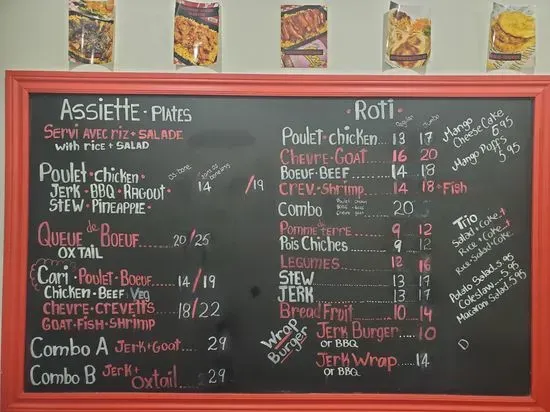 ASSIETTE • PLATES
SERVI AVEC RIZ + SALADE
WITH RICE + SALAD
POULET • CHICKEN
JERK • BBQ • RAGOUT 14 /19
STEW • PINEAPPLE •
QUEUE de BOEUF 20/25
OXTAIL
CARI • POULET • BOEUF
CHICKEN • BEEF Veg 14/19
CHEVRE • CREVETTS 18/22
GOAT • FISH • SHRIMP
COMBO A JERK + GOAT 29
COMBO B JERK + OXTAIL 29
• ROTI •
POULET • CHICKEN 13 17
CHEVRE • GOAT 16 20
BOEUF • BEEF 14 18
CREV. • SHRIMP 14 18 + FISH
COMBO 20
POMME de TERRE 9 12
POIS CHICHES 9 12
LEGUMES 12 16
STEW 13 17
JERK 13 17
BREAD FRUIT 10 14
WRAP
BURGER
JERK BURGER 10
OR BBQ
JERK WRAP 14
OR BBQ
Mango
Cheese Cake
5.95
Mango Puffs
5.95
TRIO
Salad + Coke
Rice + Coke
Rice • Salad • Coke
Potato Salad 5.95
Coleslaw 5.95
Macaroni Salad 5.95